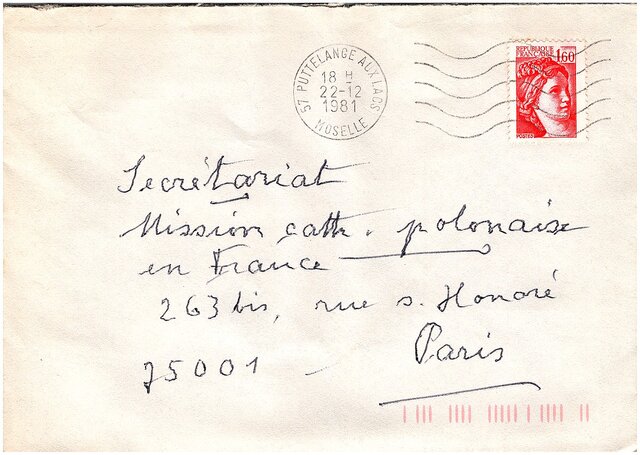 57 PUTTELANGE AUX LACS
18 H
22-12
1981
MOSELLE
REPUBLIQUE
FRANCAISE
1,60
Secrétariat
Mission cath. polonaise
en France
263 bis, rue s. Honoré
Paris
75001